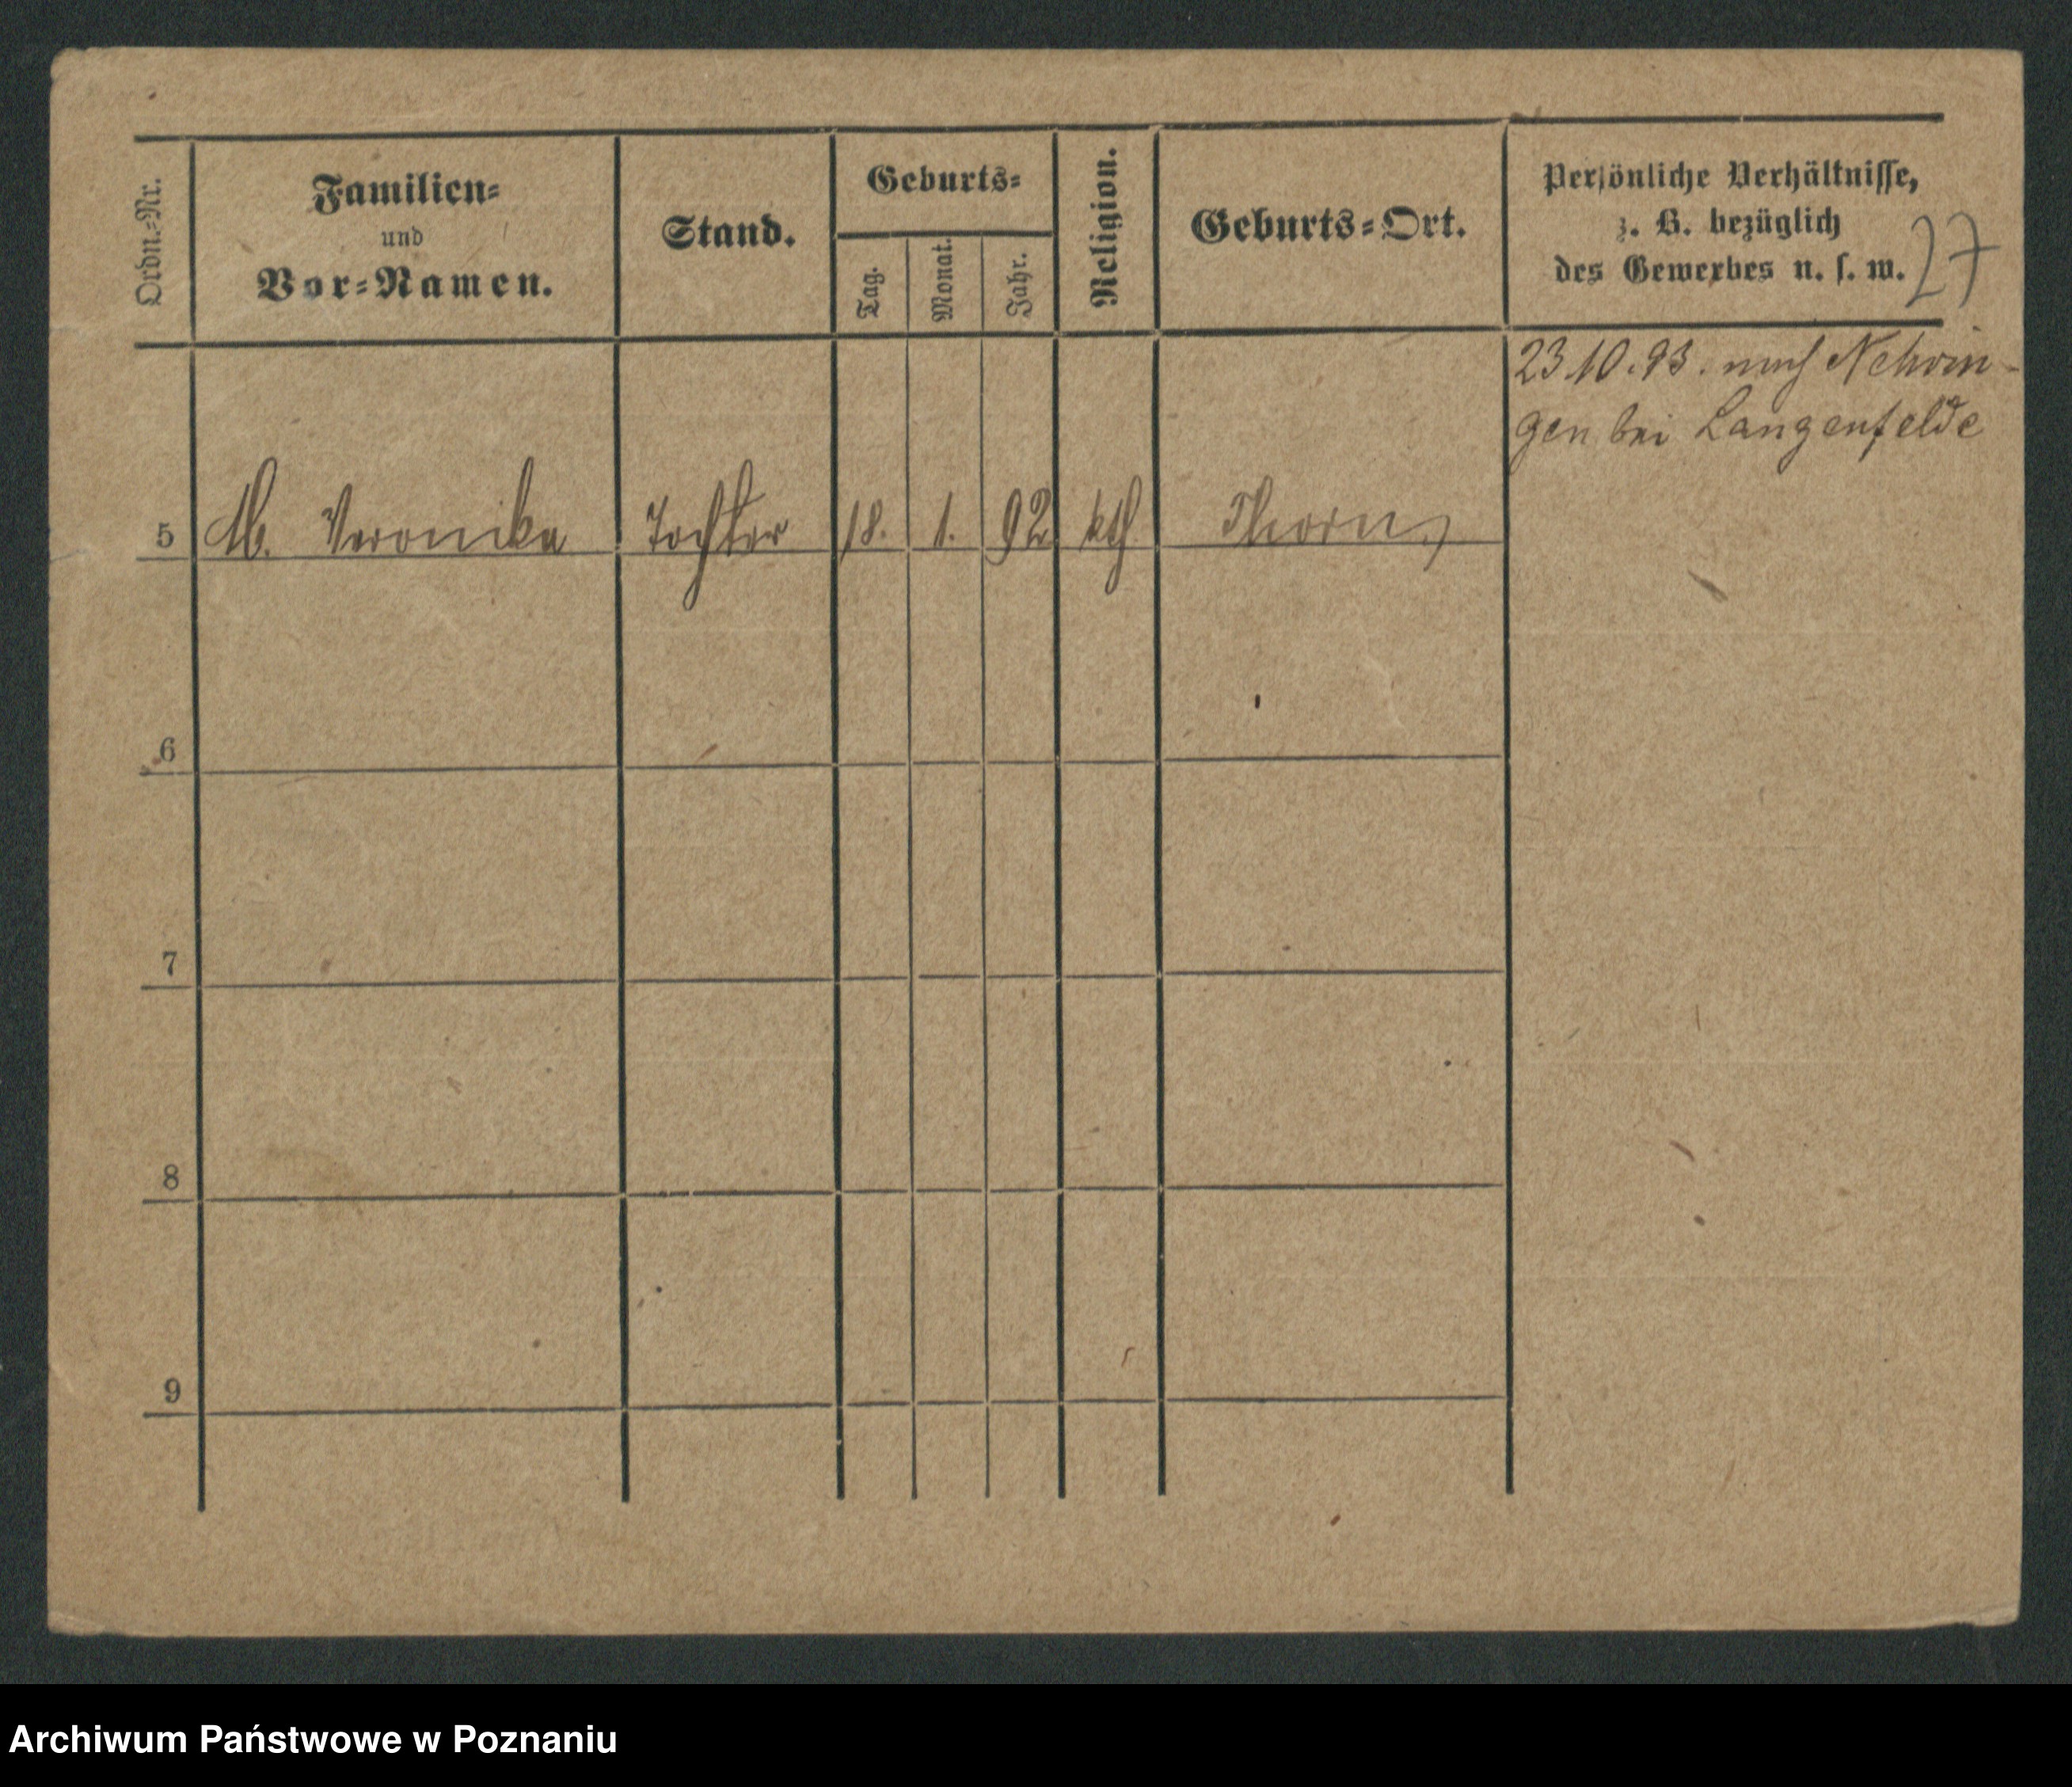 Ordn.-Nr.
Familien-
und
Vor-Namen.
Stand.
Geburts-
Tag.
Monat.
Jahr.
Religion.
Geburts-Ort.
Persönliche Verhältnisse,
z. B. bezüglich
des Gewerbes u. s. w.
27
23.10.93. nach Nehrin-
gen bei Langenfelde
5 Veronika Tochter 18. 1. 92 kth Thorn
6
7
8
9
Archiwum Państwowe w Poznaniu